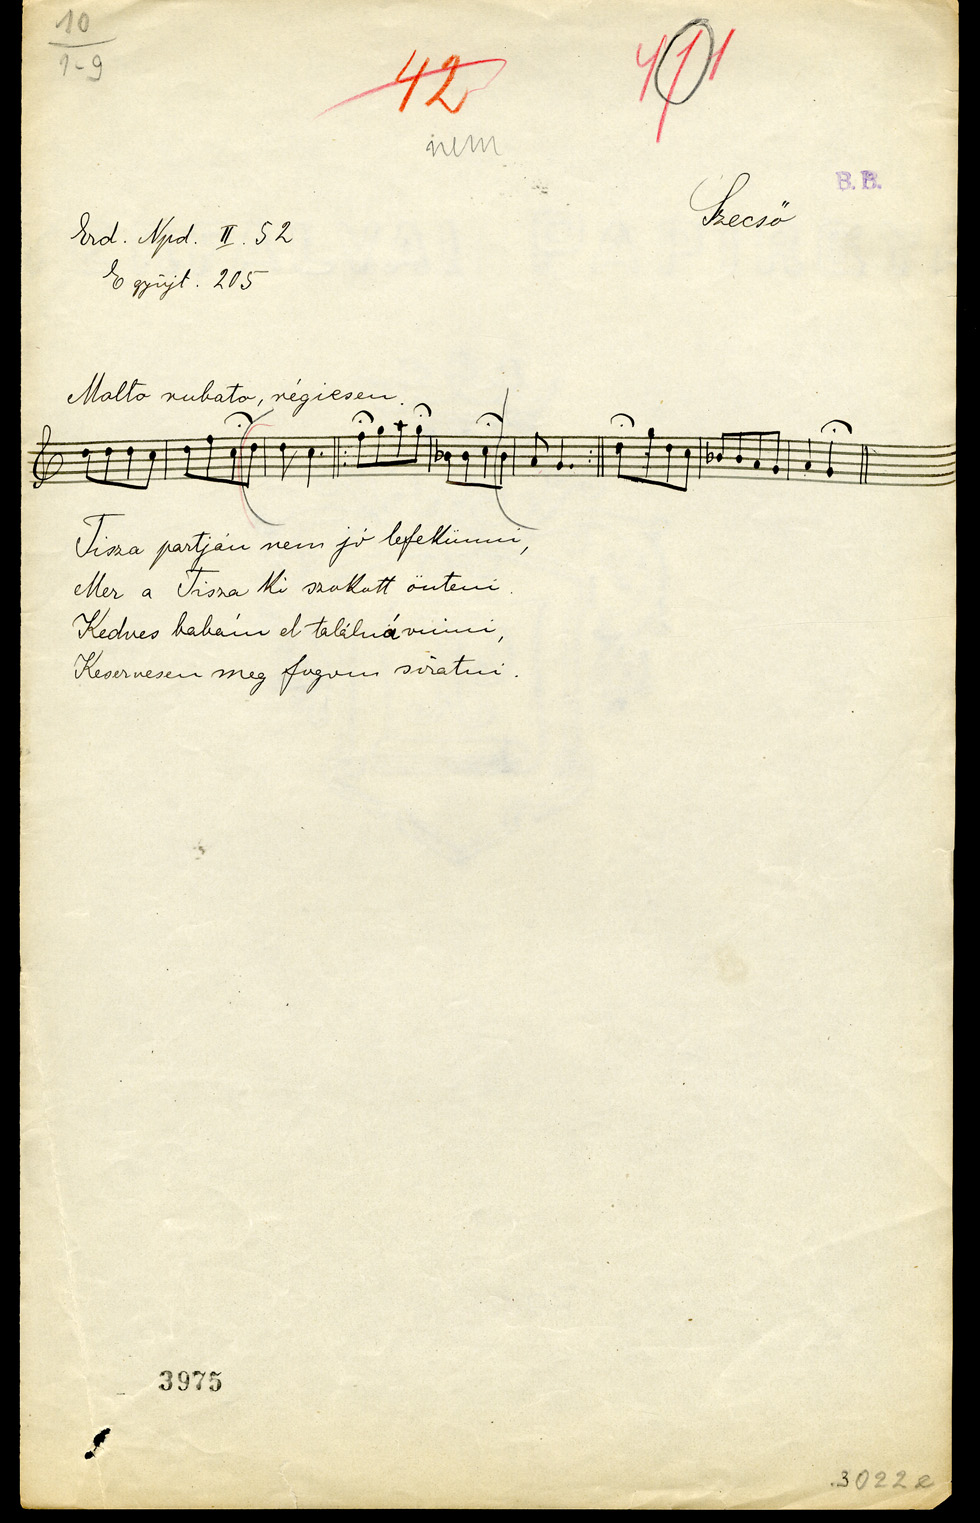 10
1-9
42
nem
Szecső
B. B.
Erd. Npd. II. 52
E gyűjt. 205
Molto rubato, régiesen.
Tisza partján nem jó lefekünni,
Mer a Tisza ki szokott önteni.
Kedves babám el találná vinni,
Keservesen meg fogom siratni.
3975
3022